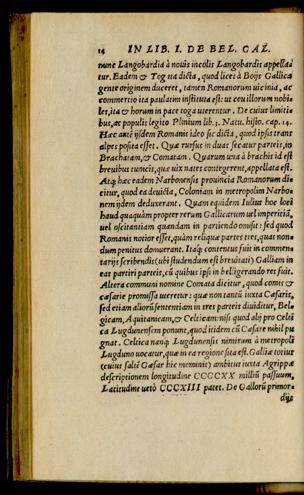 14 IN LIB. I. DE BEL. GAL.
nunc Langobardia à nouis incolis Langobardis appella
tur. Eadem & Togata dicta, quod licet à Boijs Gallica
gente originem duceret, tamen Romanorum uicinia, ac
commertio ita paulatim instituta est: ut ceu illorum nobi-
les, ita & horum in pace toga uterentur. De cuius limiti-
bus, ac populis legito Plinium lib. 3. Natu. histo. cap. 14.
Hæc antè ijsdem Romanis ideo sic dicta, quod ipsis trans
alpes posita esset. Quæ rursus in duas secatur parteis, in
Brachatam, & Comatam. Quarum una à brachis id est
breuibus tunicis, quæ uix nates contegerent, appellata est.
Atq; hæc eadem Narbonensis prouincia Romanorum di-
citur, quod ea deuicta, Coloniam in metropolim Narbo
nem ijdem deduxerant. Quam equidem Iulius hoc loci
haud quaquàm propter rerum Gallicarum uel imperitiã,
uel oscitantiam quandam in partiendo omisit: sed quod
Romanis notior esset, quàm reliquæ partes tres, quas non
dum penitus domuerant. Itaq; contentus fuit in commen
tarijs scribendis (ubi studendum est breuitati) Galliam in
eas partiri parteis, cũ quibus ipsi in belligerando res fuit.
Altera communi nomine Comata dicitur, quod comis &
cæsarie promissa uteretur: quæ non tantũ iuxta Cæsarẽ,
sed etiam aliorũ sententiam in tres parteis diuiditur, Bel
gicam, Aquitanicam, & Celticam: nisi quod alij pro Celti
ca Lugdunensem ponunt, quod itidem cũ Cæsare nihil pu
gnat. Celtica nanq; Lugdunensis nimirum à metropoli
Lugduno uocatur, quæ in ea regione sita est. Galliæ totius
(cuius saltẽ Cæsar hic meminit) ambitus iuxta Agrippæ
descriptionem longitudine CCCCXX milliũ passuum,
Latitudine uerò CCCXIII patet. De Gallorũ primor-
dijs